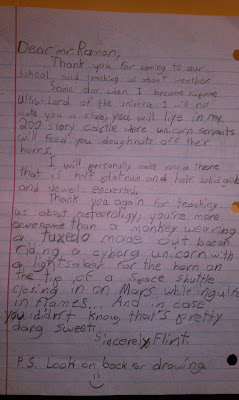 Dear mr. Ramon,
Thank you for coming to our
school and teaching us about weather.
Some day when I become supreme
Ultra-Lord of the universe I will not
make you a slave, you will live in my
200 story castle where unicorn servants
will feed you doughnuts off their
horns.
I will personally make you a throne
that is half platnum and half solid gold
and jewels encrested.
Thank you again for teaching
us about meteoroligy, you're more
awesome than a monkey wearing
a tuxedo made out bacon
riding a cyborg unicorn with
a lightsaber for the horn on
the tip of a space shuttle
closing in on Mars while ingulfed
in flames... And in case
you didn't know, that's pretty
dang sweet.
Sincerely, Flint.
P.S. Look on back for drawing.